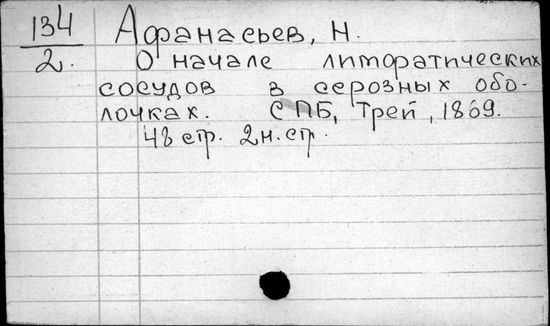 134 Афанасьев, Н.
2. О начале лимфатических
сосудов в серозных обо-
лочках. СПБ, Трей, 1869.
48 стр. 2н.стр.